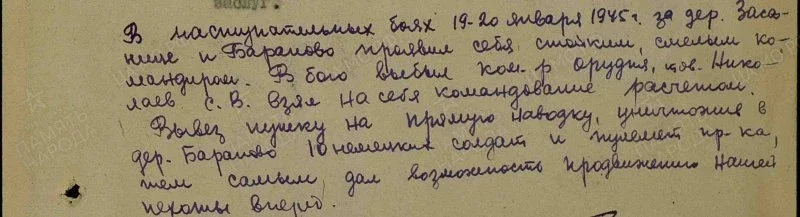 заслуг.
В наступательных боях 19-20 января 1945г. за дер. Заса-
нице и Барапово проявил себя стойким, смелым ко-
мандиром. В бою выбыл ком-р орудия, тов. Нико-
лаев С. В. взял на себя командование расчетом.
Вывез пушку на прямую наводку, уничтожив в
дер. Барапово 10 немецких солдат и пулемет пр-ка,
тем самым дал возможность продвижению нашей
пехоты вперед.